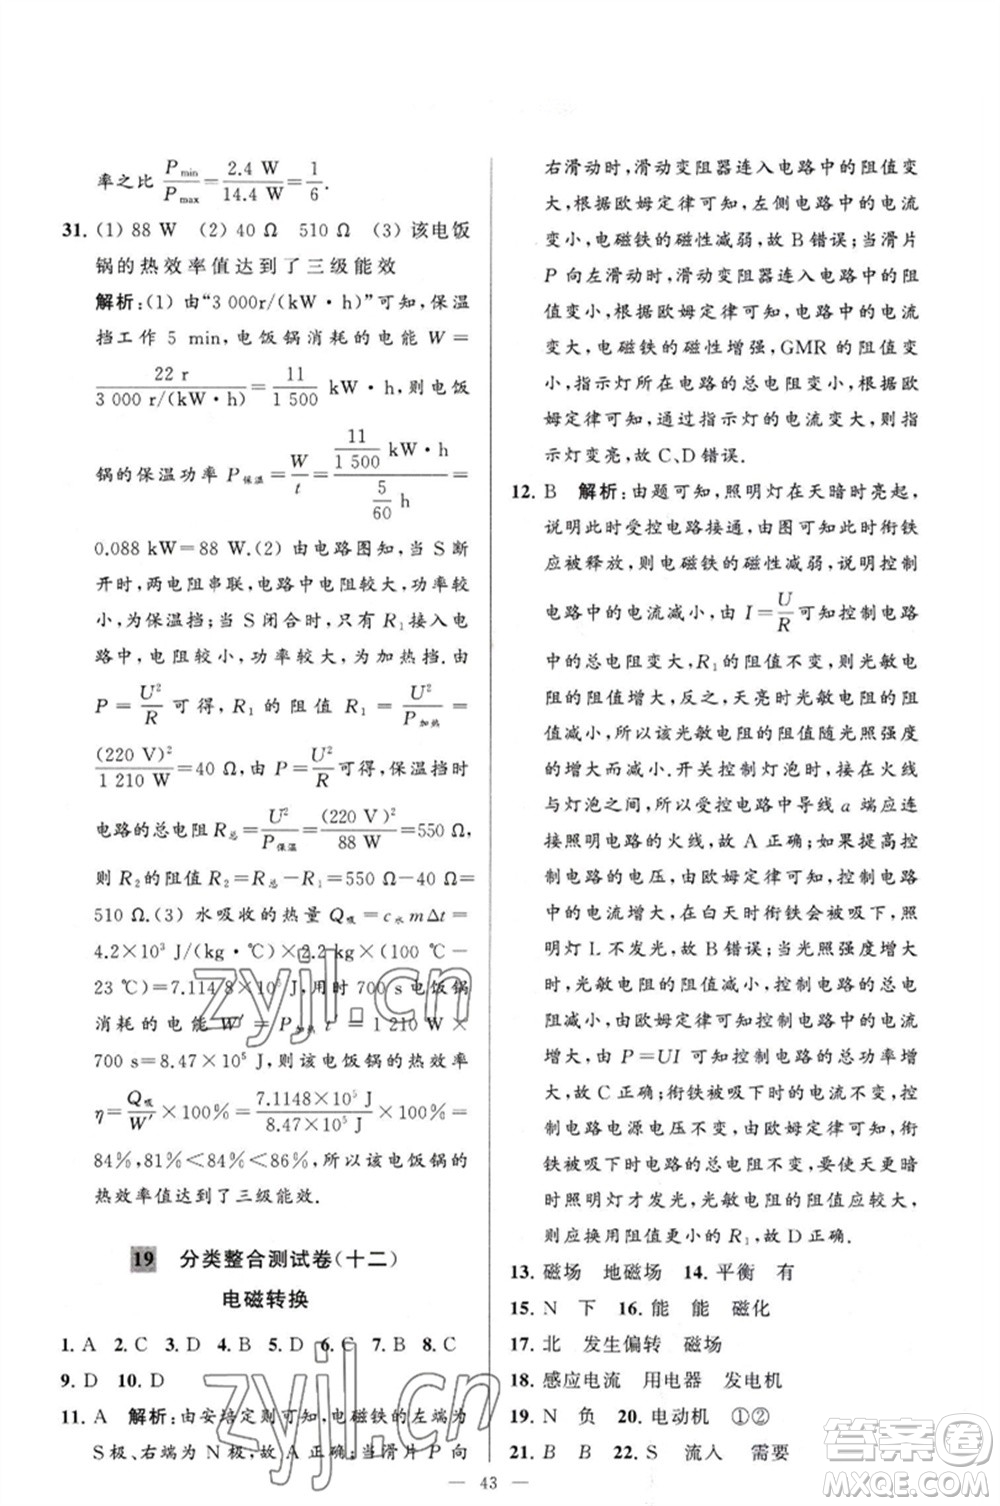 率之比 P min/P max = 2.4 W/14.4 W = 1/6.
31. (1) 88 W (2) 40 Ω 510 Ω (3) 该电饭
锅的热效率值达到了三级能效
解析:(1) 由“3 000r/(kW·h)”可知,保温
挡工作 5 min,电饭锅消耗的电能 W =
22 r/3 000 r/(kW·h) = 11/1 500 kW·h,则电饭
锅的保温功率 P保温 = W/t = (11/1 500 kW·h)/(5/60 h) =
0.088 kW=88 W.(2) 由电路图知,当 S 断
开时,两电阻串联,电路中电阻较大,功率较
小,为保温挡;当 S 闭合时,只有 R₁接入电
路中,电阻较小,功率较大,为加热挡.由
P = U²/R 可得,R₁ 的阻值 R₁ = U²/P加热 =
(220 V)²/1 210 W = 40 Ω,由 P = U²/R 可得,保温挡时
电路的总电阻 R总 = U²/P保温 = (220 V)²/88 W = 550 Ω,
则 R₂ 的阻值 R₂=R总-R₁=550 Ω-40 Ω=
510 Ω.(3) 水吸收的热量 Q吸 = c水 mΔt =
4.2×10³ J/(kg·℃)×2.2 kg×(100 ℃-
23 ℃)=7.114 8×10⁵ J,用时 700 s 电饭锅
消耗的电能 W′ = P加热 t = 1 210 W ×
700 s=8.47×10⁵ J,则该电饭锅的热效率
η = Q吸/W′ × 100% = 7.1148×10⁵ J/8.47×10⁵ J × 100% =
84%,81%<84%<86%,所以该电饭锅的
热效率值达到了三级能效.
19 分类整合测试卷(十二)
电磁转换
1. A 2. C 3. D 4. D 5. D 6. C 7. B 8. C
9. D 10. D
11. A 解析:由安培定则可知,电磁铁的左端为
S 极、右端为 N 极,故 A 正确;当滑片 P 向
右滑动时,滑动变阻器连入电路中的阻值变
大,根据欧姆定律可知,左侧电路中的电流
变小,电磁铁的磁性减弱,故 B 错误;当滑片
P 向左滑动时,滑动变阻器连入电路中的阻
值变小,根据欧姆定律可知,电路中的电流
变大,电磁铁的磁性增强,GMR 的阻值变
小,指示灯所在电路的总电阻变小,根据欧
姆定律可知,通过指示灯的电流变大,则指
示灯变亮,故 C、D 错误.
12. B 解析:由题可知,照明灯在天暗时亮起,
说明此时受控电路接通,由图可知此时衔铁
应被释放,则电磁铁的磁性减弱,说明控制
电路中的电流减小,由 I = U/R 可知控制电路
中的总电阻变大,R₁ 的阻值不变,则光敏电
阻的阻值增大,反之,天亮时光敏电阻的阻
值减小,所以该光敏电阻的阻值随光照强度
的增大而减小.开关控制灯泡时,接在火线
与灯泡之间,所以受控电路中导线 a 端应连
接照明电路的火线,故 A 正确;如果提高控
制电路的电压,由欧姆定律可知,控制电路
中的电流增大,在白天时衔铁会被吸下,照
明灯 L 不发光,故 B 错误;当光照强度增大
时,光敏电阻的阻值减小,控制电路的总电
阻减小,由欧姆定律可知控制电路中的电流
增大,由 P=UI 可知控制电路的总功率增
大,故 C 正确;衔铁被吸下时的电流不变,控
制电路电源电压不变,由欧姆定律可知,衔
铁被吸下时电路的总电阻不变,要使天更暗
时照明灯才发光,光敏电阻的阻值应较大,
则应换用阻值更小的 R₁,故 D 正确.
13. 磁场 地磁场 14. 平衡 有
15. N 下 16. 能 能 磁化
17. 北 发生偏转 磁场
18. 感应电流 用电器 发电机
19. N 负 20. 电动机 ①②
21. B B 22. S 流入 需要
— 43 —
zyjl.cn
zyjl.cn
答案圈
MXQE.COM